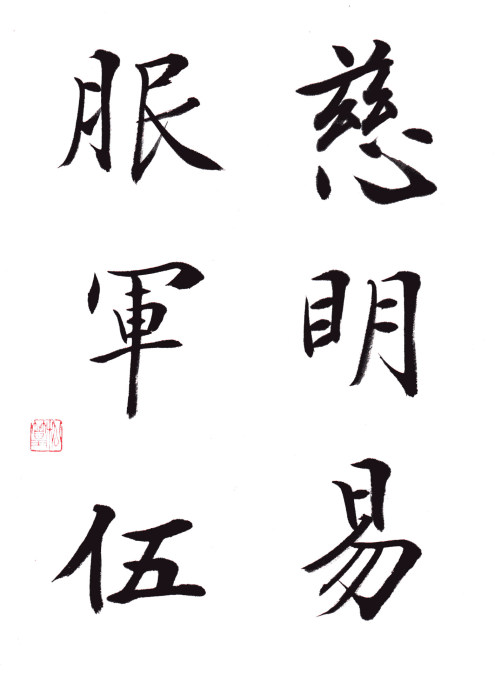 慈明易
服軍伍